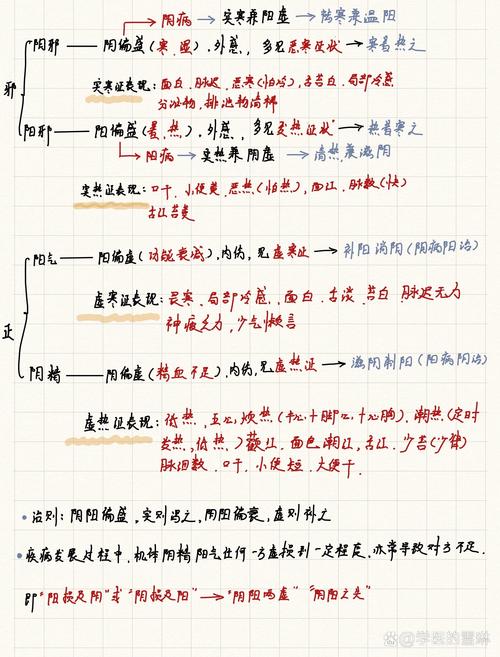 阳病 → 实寒兼阳虚 → 祛寒兼温阳
阴邪 — 阴偏盛(寒、湿),外感,多见恶寒症状 → 寒者热之
邪
实寒证表现:面白、脉迟、恶寒(怕冷)、舌苔白、局部冷感
分泌物,排泄物清稀
阳邪 — 阳偏盛(暑、热),外感,多见发热症状 → 热者寒之
阴病 → 实热兼阴虚 → 清热兼滋阴
实热证表现:口干、小便黄、恶热(怕热)、面红、脉数(快)
舌红苔黄
阳气 — 阳偏虚(功能衰减),内伤,见虚寒证 → 补阳消阴(阴病阳治)
虚寒证表现:畏寒、局部冷感、面白、舌淡、苔白 脉迟无力
神疲乏力,少气懒言
正
阴精 — 阴偏虚(精血不足),内伤,见虚热证 → 滋阴制阳(阳病阴治)
虚热证表现:低热、五心烦热(手心+脚心+心胸)、潮热(定时
发热,低热)颧红、面色潮红、舌红、少苔(少津)
脉细数、口干、小便短、大便干、
• 治则:阴阳偏盛,实则泻之,阴阳偏衰,虚则补之
• 疾病发展过程中,机体阴精阳气任何一方虚损到一定程度,亦常导致对方不足.
即"阳损及阴"或"阴损及阳" → "阴阳两虚" "阴阳之失"
@学医的雪琳